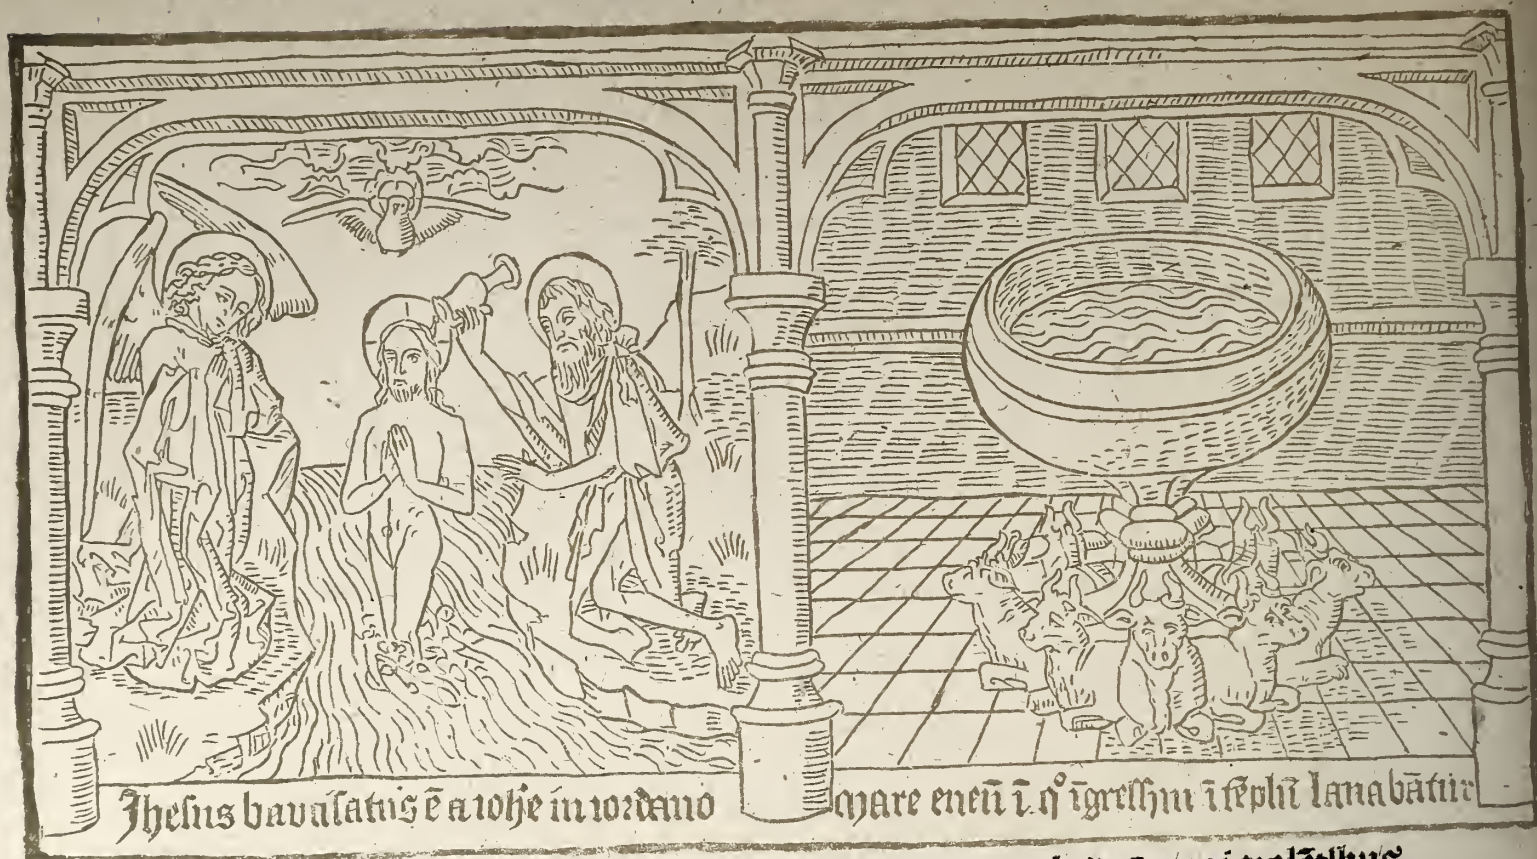 Jhesus bavtisatus ē a ioħe in iordano
Mare eneū ī qͦ īgressuri ī tēplū lauabātur